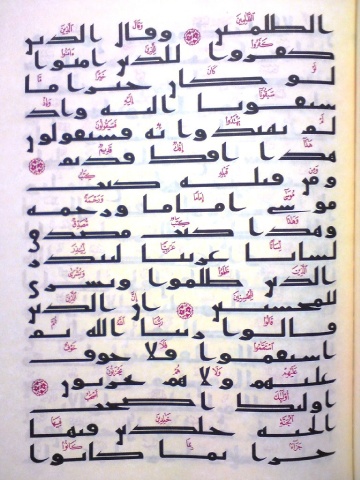 الظلمين وقال الذين
كفروا للذين امنوا
لو كان خيرا ما
سبقونا اليه واذ
لم يهتدوا به فسيقولون
هذا افك قديم
ومن قبله كتب
موسى اماما ورحمة
وهذا كتب مصدق
لسانا عربيا لينذر
الذين ظلموا وبشرى
للمحسنين ان الذين
قالوا ربنا الله ثم
استقموا فلا خوف
عليهم ولا هم يحزنون
اولئك اصحب
الجنة خلدين فيها
جزا بما كانوا